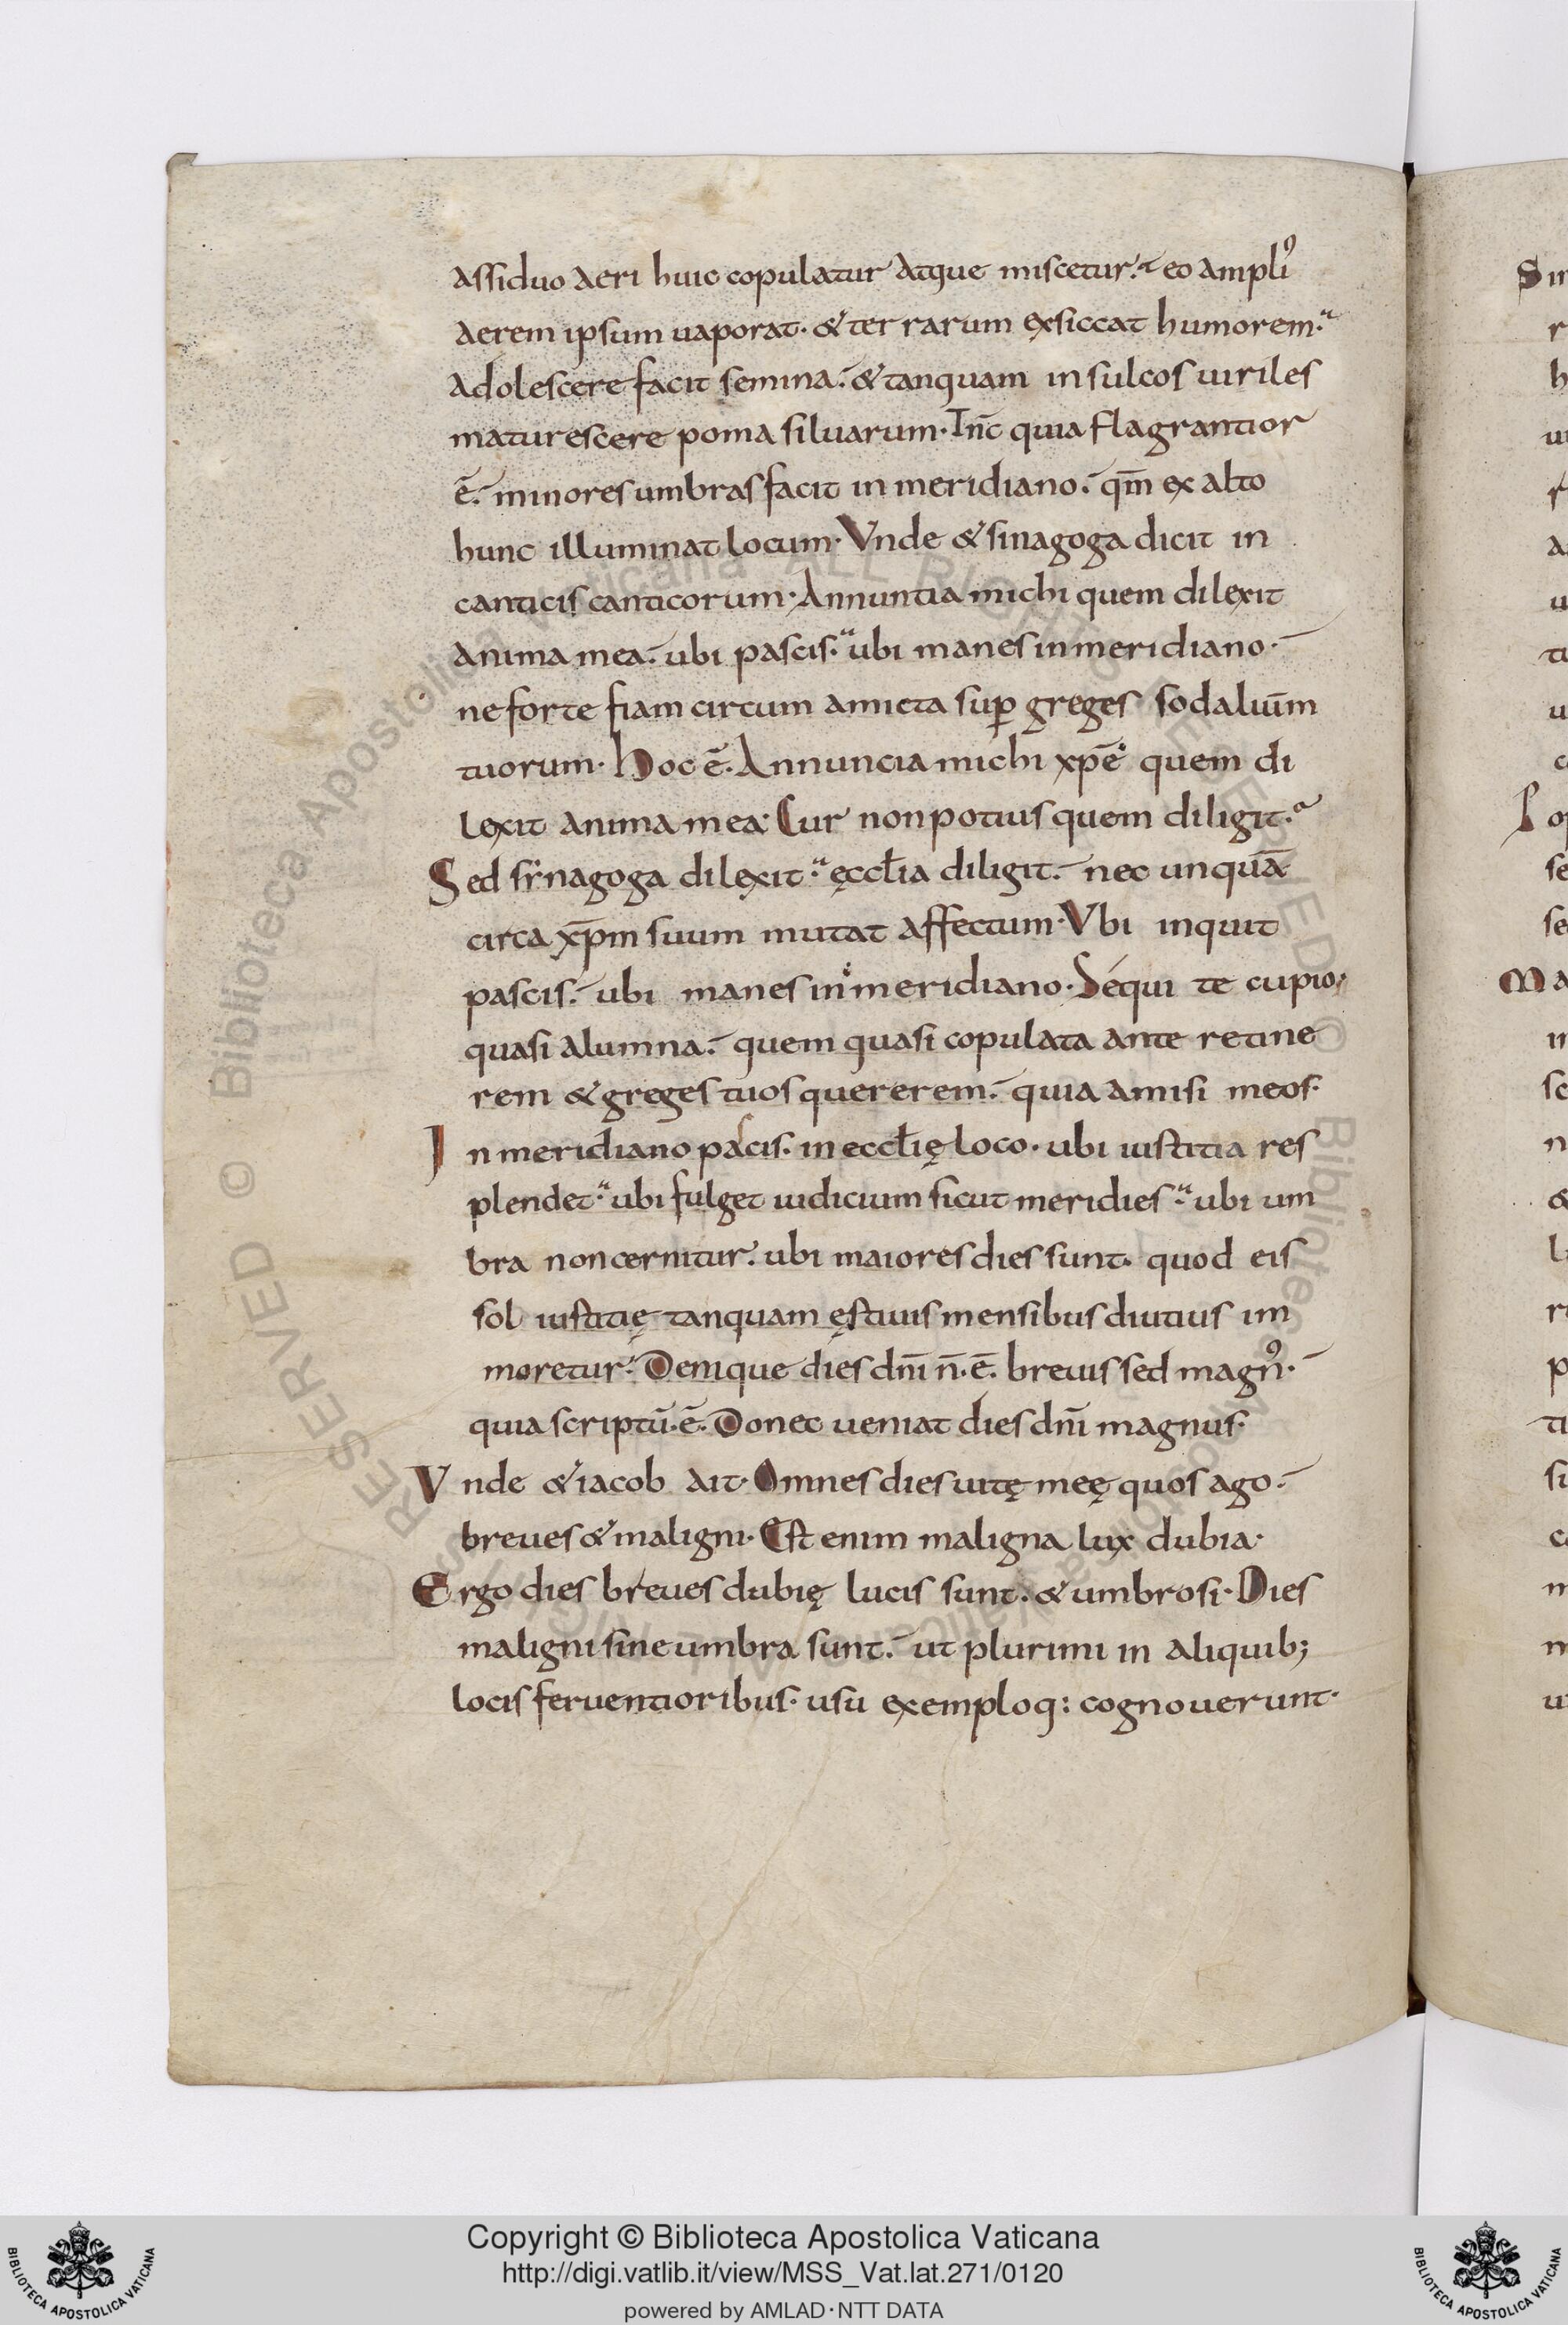 assiduo aeri huic copulatur atque miscetur. eo ampli᾿
aerem ipsum uaporat. & terrarum exsiccat humorem.
adolescere facit semina. & tanquam in sulcos uiriles
maturescere poma siluarum. Inc̄ quia flagrantior
ē. minores umbras facit in meridiano. qm̄ ex alto
hunc illuminat locum. Vnde & sinagoga dicit in
canticis canticorum. Annuntia michi quem dilexit
anima mea. ubi pascis. ubi manes in meridiano.
ne forte fiam circum amicta sup̄ greges sodaliūm
tuorum. Hoc ē. Annuncia michi xp̄e quem di
lexit anima mea. Cur non potius quem diligit.
Sed sẏnagoga dilexit. ęccl̄ia diligit. nec unquā
circa xp̄m suum mutat affectum. Vbi inquit
pascis. ubi manes in meridiano. Séqui te cupio
quasi alumna. quem quasi copulata ante retine
rem & greges tuos quererem. quia amisi meos.
In meridiano pascis. in eccl̄ię loco. ubi iustitia res
plendet. ubi fulget iudicium sicut meridies. ubi um
bra non cernitur. ubi maiores dies sunt. quod eis
sol iustitię tanquam ęstiuis mensibus diutius im
moretur. Denique dies dn̄i n̄. ē. breuis sed magn᾿.
quia scriptū. ē. Donec ueniat dies dn̄i magnus.
Vnde & iacob ait. Omnes dies uitę meę quos ago.
breues & maligni. Est enim maligna lux dubia.
Ergo dies breues dubię lucis sunt. & umbrosi. Dies
maligni sine umbra sunt. ut plurimi in aliquib;
locis feruentioribus. usu exemploq: cognouerunt.
Copyright © Biblioteca Apostolica Vaticana
http://digi.vatlib.it/view/MSS_Vat.lat.271/0120
powered by AMLAD·NTT DATA